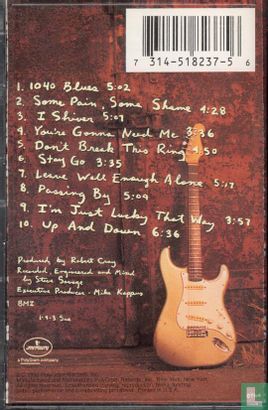 7 314-518237-5 6
1. 1040 Blues 5:02
2. Some Pain, Some Shame 4:28
3. I Shiver 5:07
4. You're Gonna Need Me 3:36
5. Don't Break This Ring 4:50
6. Stay Go 3:35
7. Leave Well Enough Alone 5:17
8. Passing By 5:09
9. I'm Just Lucky That Way 3:57
10. Up And Down 6:36
Produced by Robert Cray
Recorded, Engineered and Mixed
by Steve Savage
Executive Producer - Mike Kappus
BMI
mercury
a PolyGram company